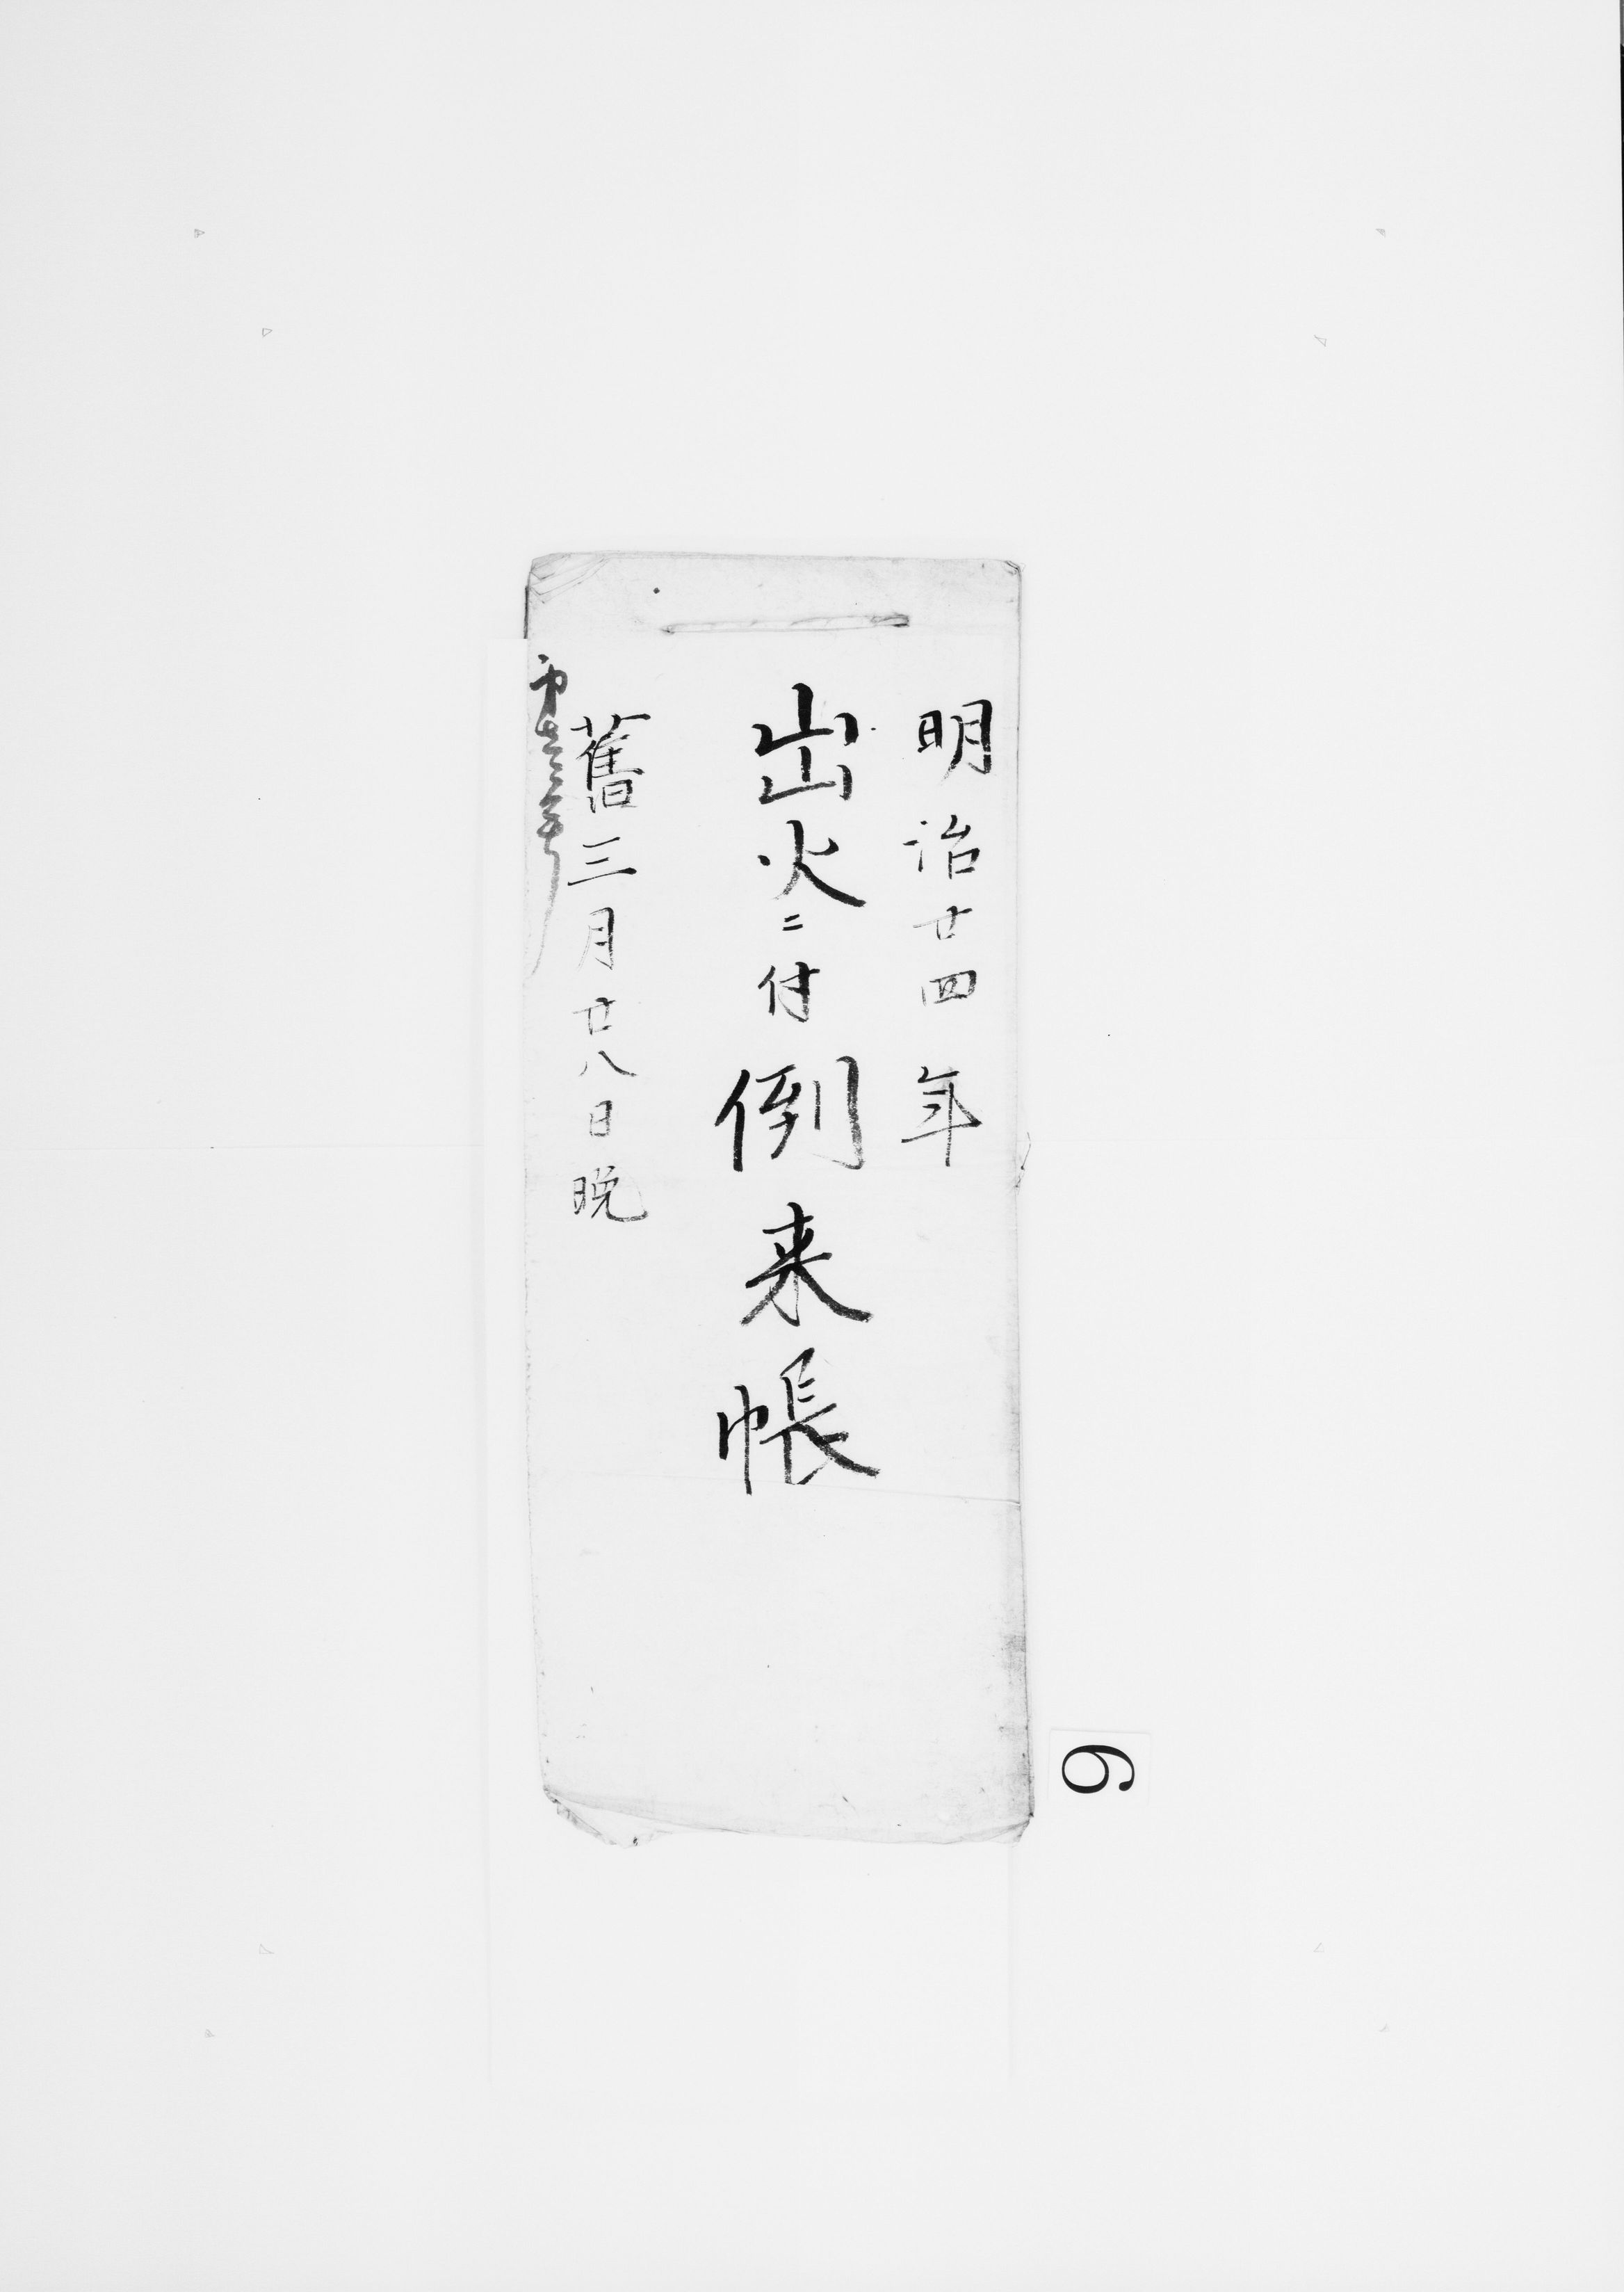 明治廿四年
出火ニ付倒来帳
舊三月廿八日晩
6